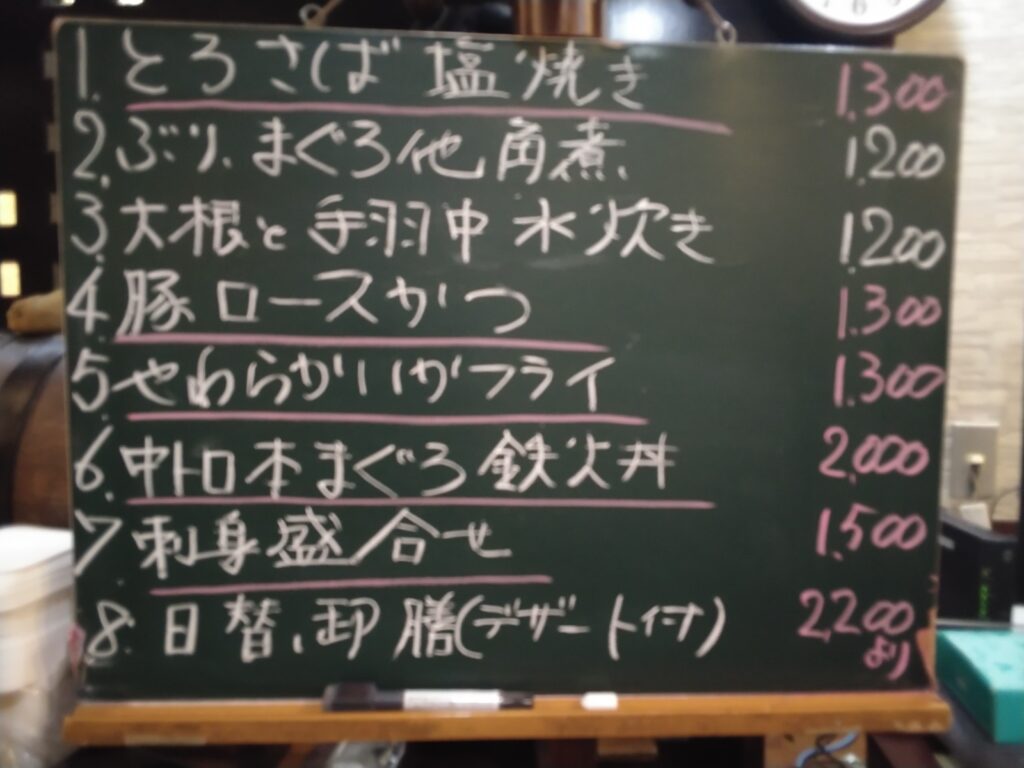 1. とろさば 塩焼き 1.300
2. ぶり、まぐろ他角煮 1.200
3. 大根と手羽中水炊き 1.200
4. 豚ロースかつ 1.300
5 やわらかいかフライ 1.300
6. 中トロ本まぐろ鉄火丼 2.000
7. 刺身盛合せ 1.500
8. 日替、卸膳(デザート付) 2.200
より